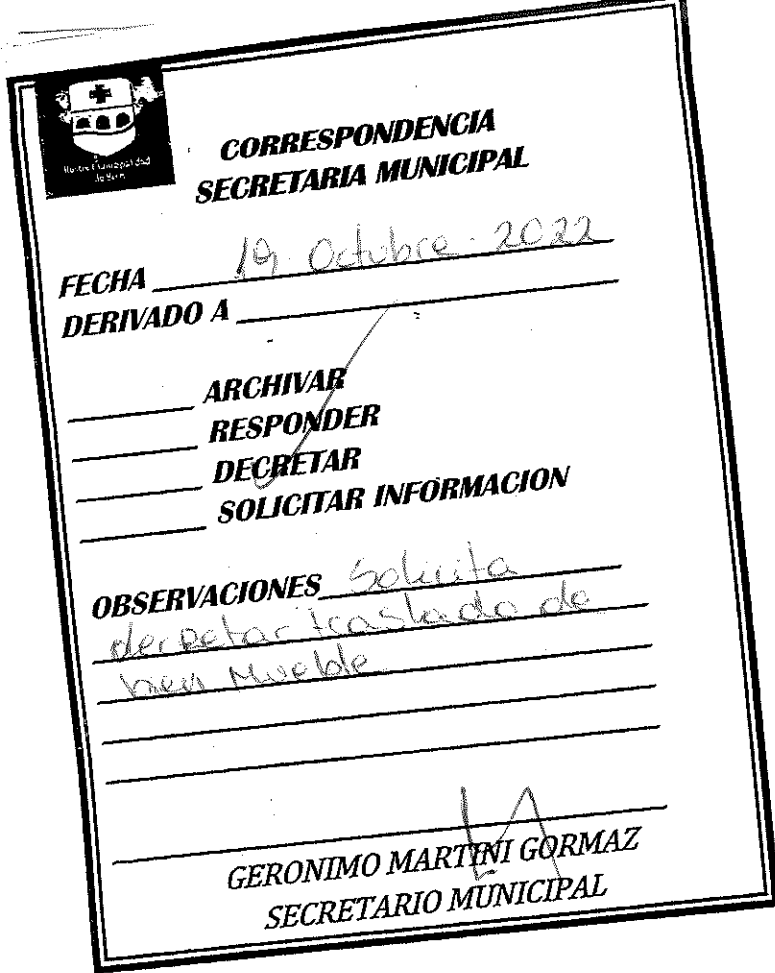 Ilustre Municipalidad
de Buin
CORRESPONDENCIA
SECRETARIA MUNICIPAL
FECHA 19. Octubre. 2022
DERIVADO A
ARCHIVAR
RESPONDER
DECRETAR
SOLICITAR INFORMACION
OBSERVACIONES Solicita
decretar traslado de
bien Mueble
GERONIMO MARTINI GORMAZ
SECRETARIO MUNICIPAL